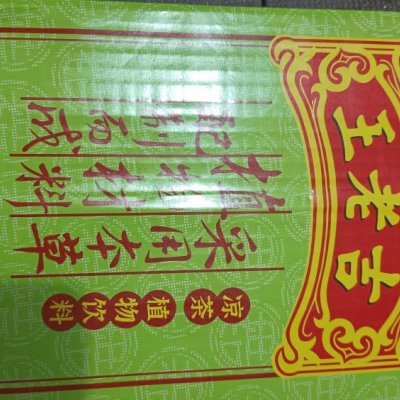 王老吉
凉茶 植物饮料
采用本草
植物材料
配制而成